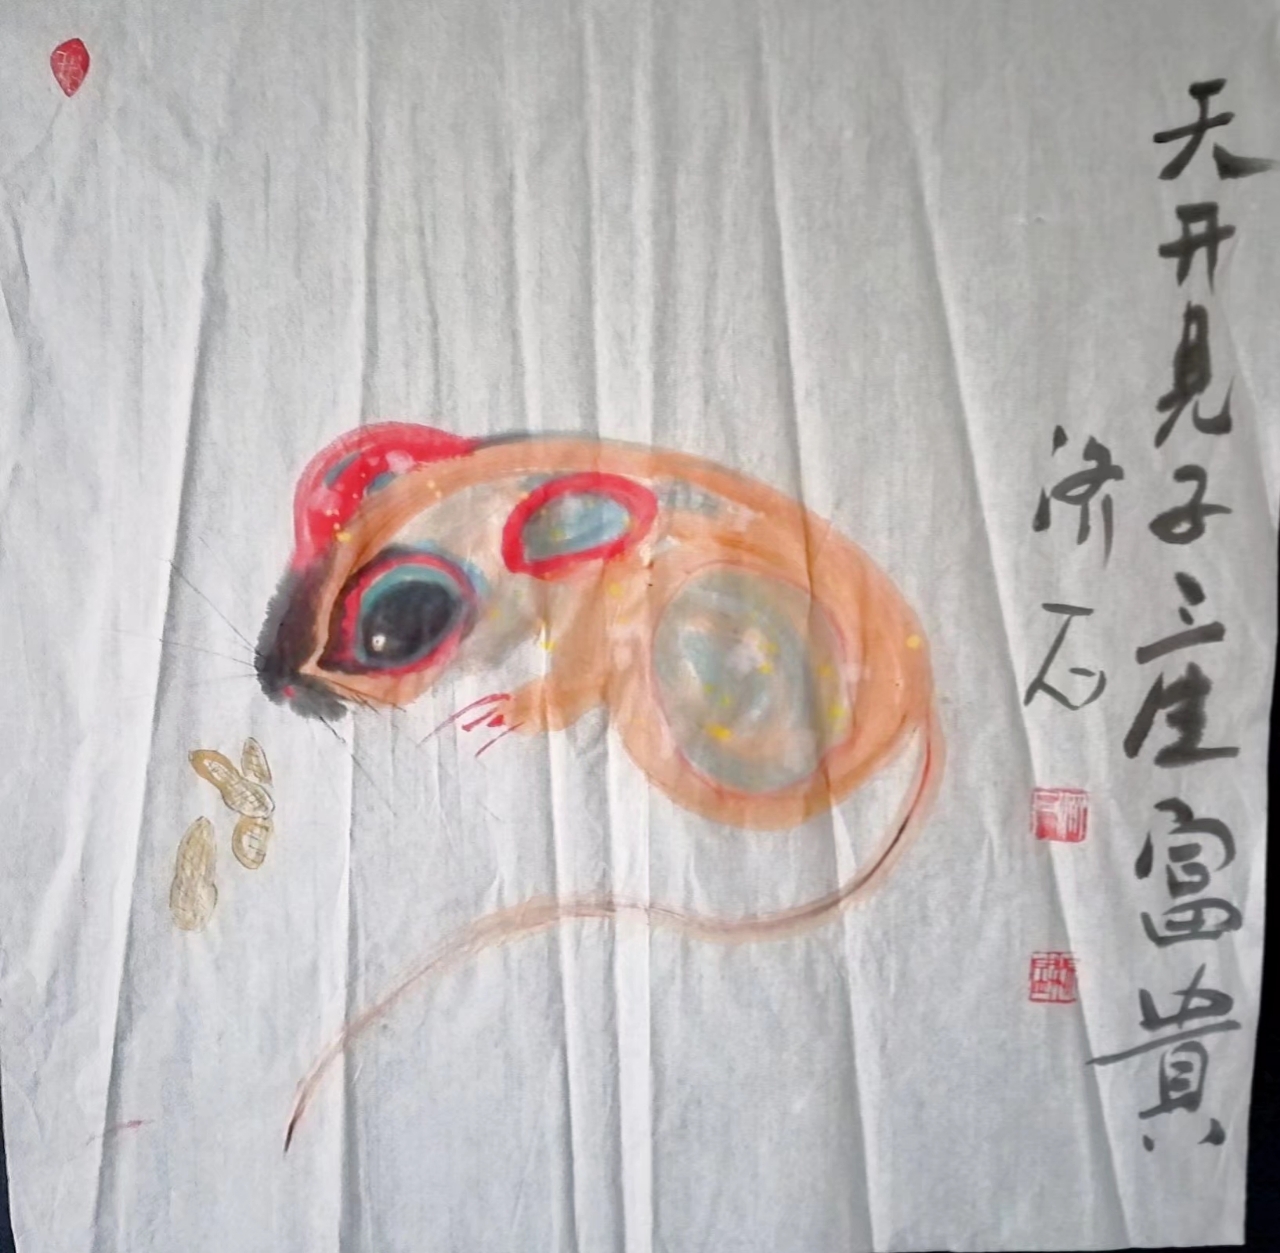 天开見子三生富貴
济石